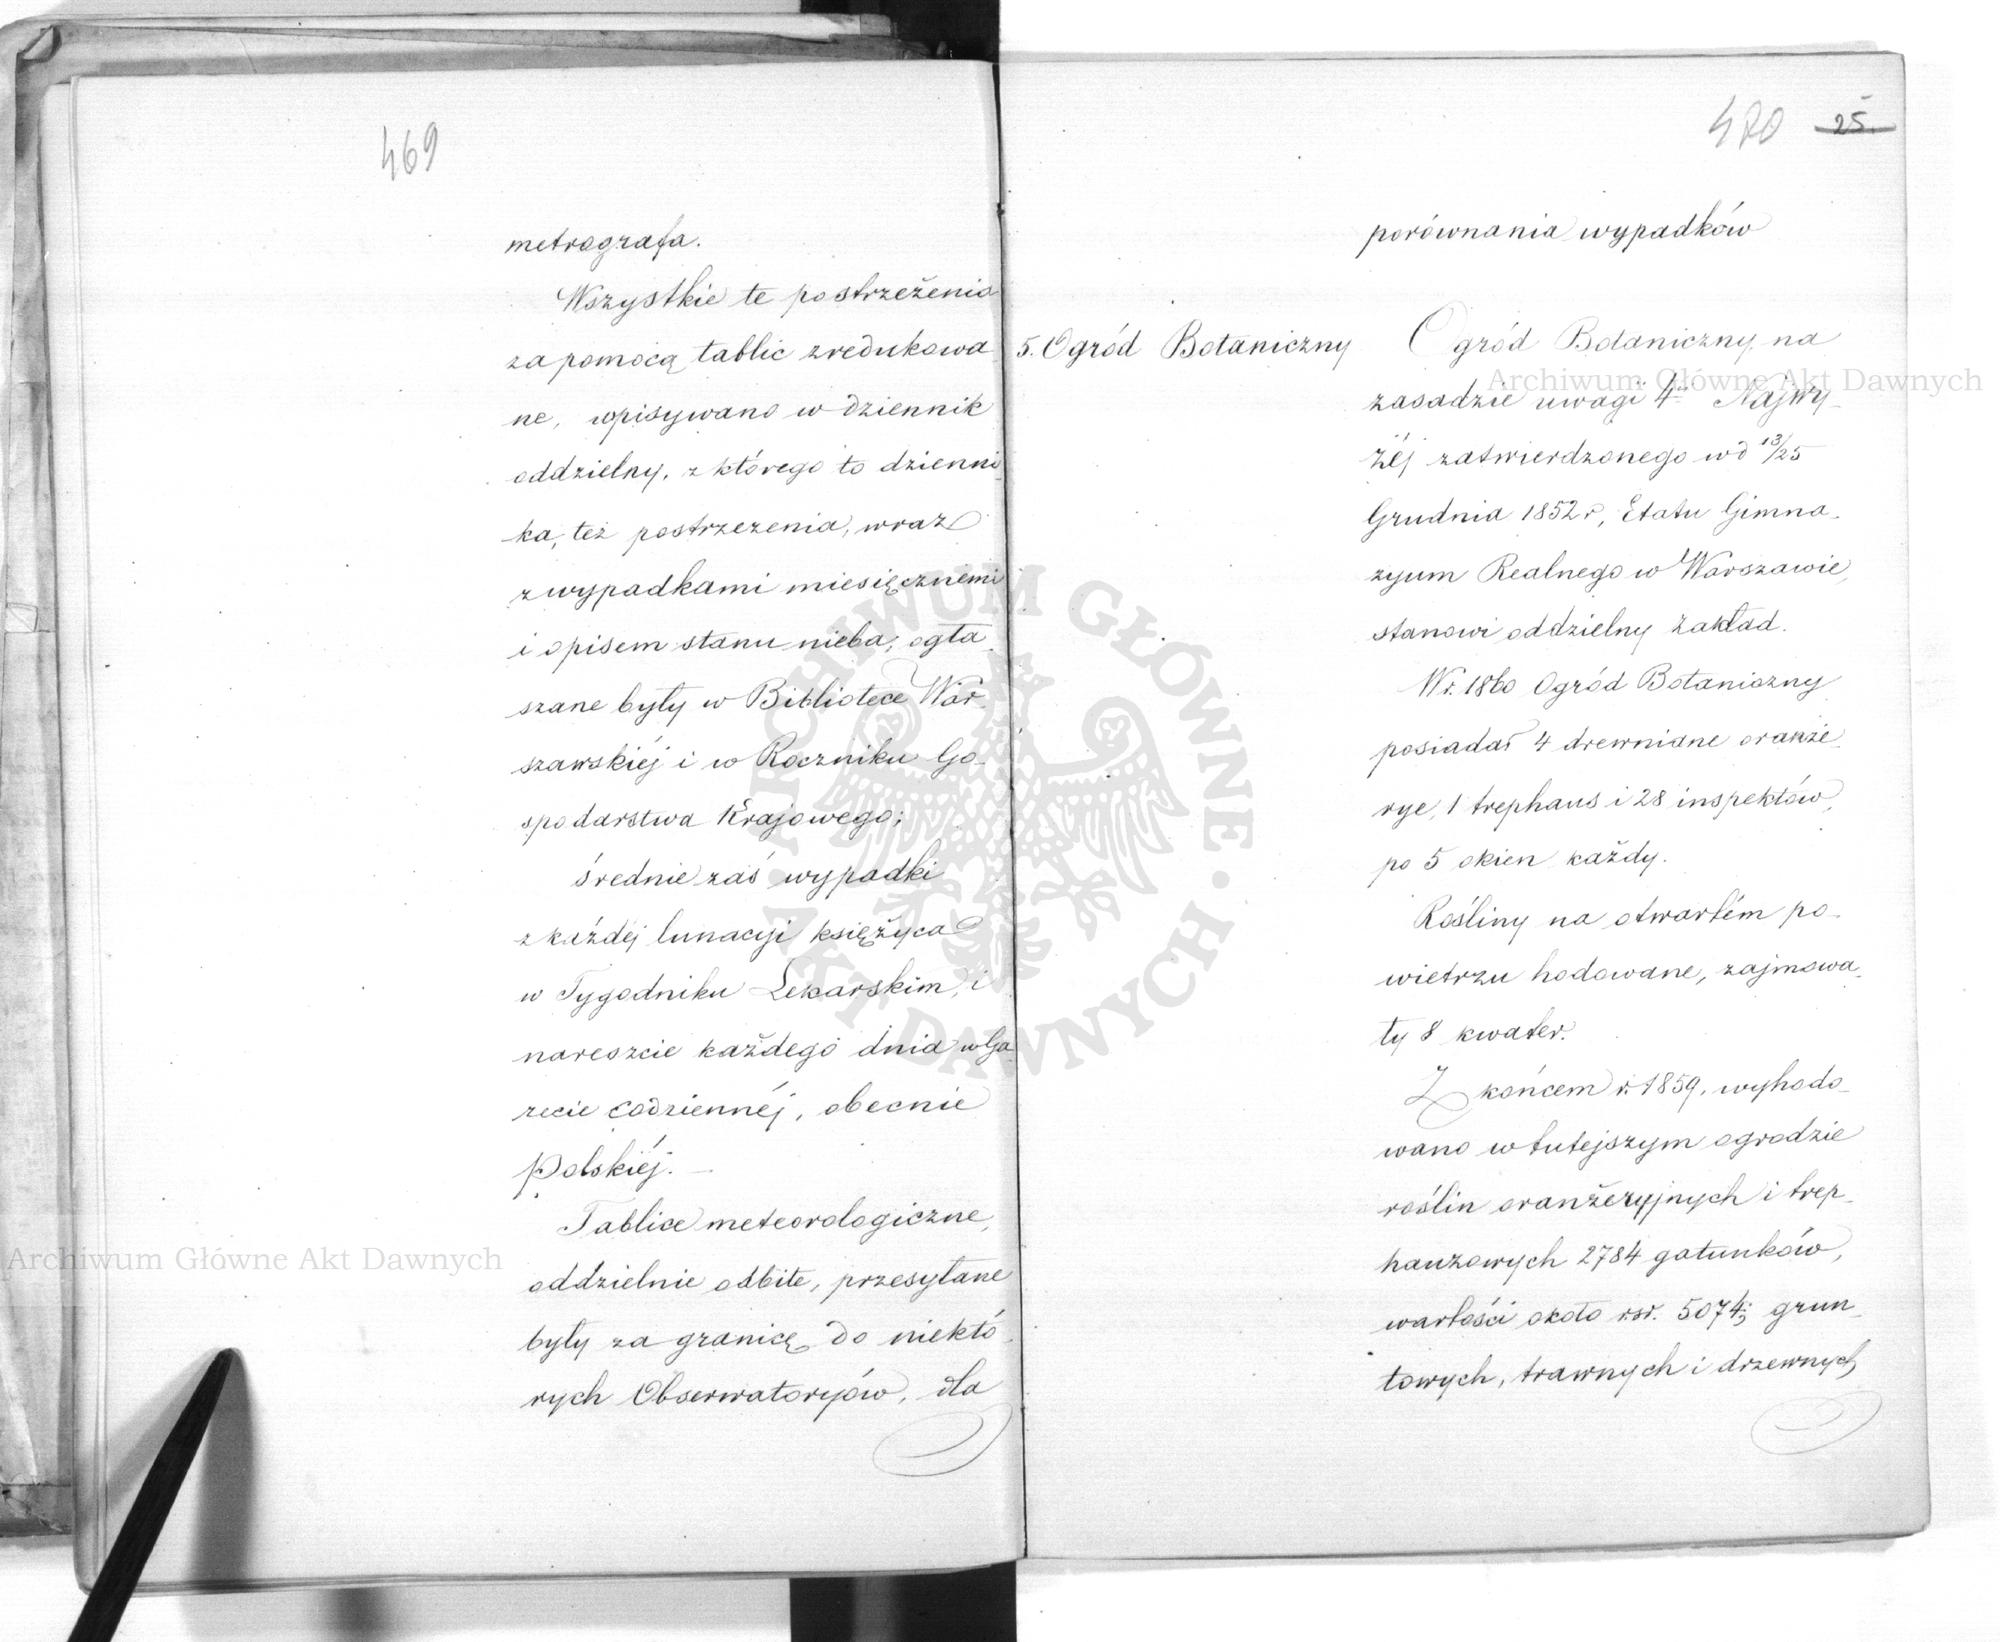 469
metrografa.
Wszystkie te postrzeżenia
za pomocą tablic zredukowa
ne, wpisywano w dziennik
oddzielny, z którego to dzienni_
ka, też postrzezenia, wraz
z wypadkami miesięcznemi
i opisem stanu nieba, ogła_
szane były w Bibliotece War_
szawskiéj i w Roczniku Go_
spodarstwa Krajowego;
średnie zaś wypadki
z każdéj lunacyi księżyca
w Tygodniku Lekarskim, i
nareszcie każdego dnia w Ga_
zecie codziennéj, obecnie
Polskiéj. _
Tablice meteorologiczne,
oddzielnie odbite, przesyłane
były za granicę do niektó_
rych Obserwatoryjów, dla
470 25.
porównania wypadków
5. Ogród Botaniczny
Ogród Botaniczny na
zasadzie uwagi 4éj Najwy_
żéj zatwierdzonego w d 13/25
Grudnia 1852 r, Etatu Gimna_
zyum Realnego w Warszawie,
stanowi oddzielny zakład.
W r. 1860 Ogród Botaniczny
posiadał 4 drewniane oranże_
rye, 1 trephaus i 28 inspektów,
po 5 okien każdy.
Rośliny na otwartém po_
wietrzu hodowane, zajmowa_
ły 8 kwater.
Z końcem r. 1859, wyhodo_
wano w tutejszym ogrodzie
roślin oranżeryjnych i trep_
hauzowych 2784 gatunków,
wartości około rsr. 5074; grun_
towych, trawnych i drzewnych
Archiwum Główne Akt Dawnych
Archiwum Główne Akt Dawnych
ARCHIWUM GŁÓWNE · AKT DAWNYCH ·